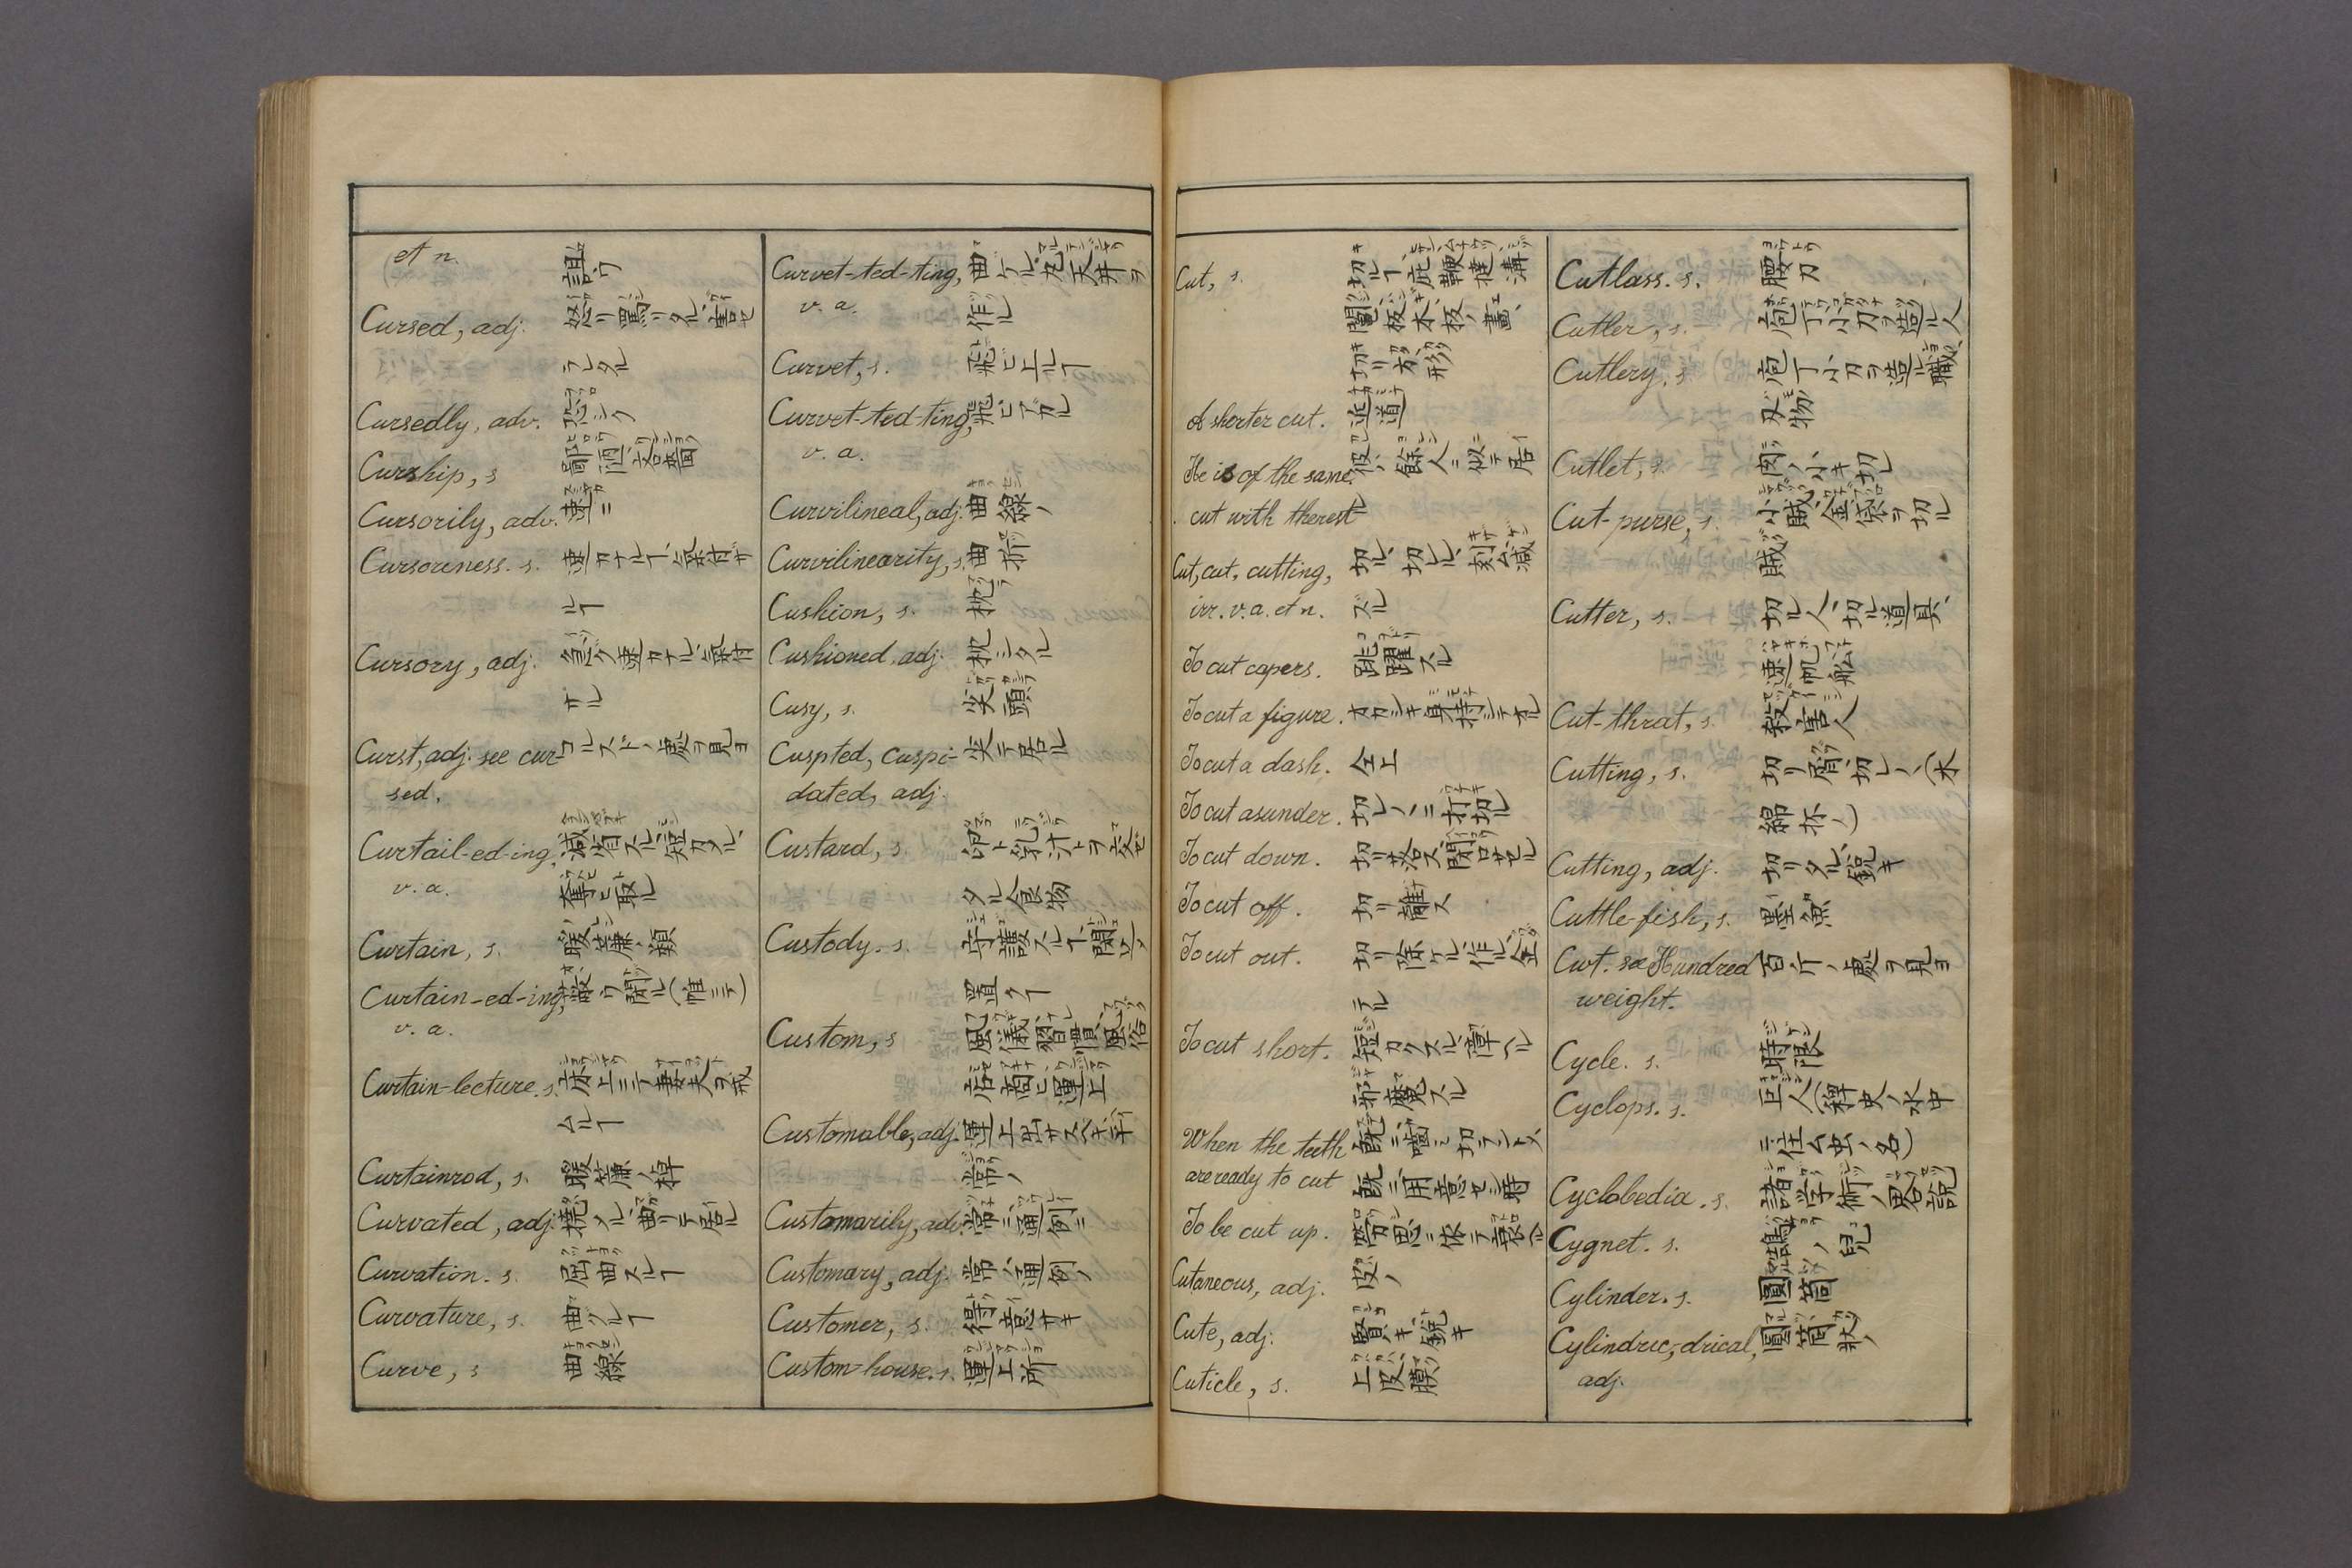 et n. 詛フ
Cursed, adj. 怒リ罵リタル、害セ
ラレタル
Cursedly, adv. 恐シク
Curship, s 鄙陋、吝嗇
Cursorily, adv. 速ニ
Cursoriness. s. 速カナルヿ、気ノ付ザ
ルヿ
Cursory, adj. 急グ、速カナル、気ノ付
ザル
Curst, adj. see cur-
sed. ノ處ヲ見ヨ
Curtail-ed-ing, 減省スル、短クスル、
v. a. 奪ヒ取ル
Curtain, s. 暖簾ノ類
Curtain-ed-ing, 蔽フ、閉ル(帷ニテ)
v. a.
Curtain-lecture. s. 床上ニテ妻夫ヲ戒
ムルヿ
Curtainrod, s. 暖簾ノ棹
Curvated, adj. 撓メル、曲リテ居ル
Curvation. s. 屈曲スルヿ
Curvature, s. 曲ルヿ
Curve, s 曲線
Curvet-ted-ting, 曲ケル、丸天井ヲ
v. a. 作ル
Curvet, s. 飛ビ上ルヿ
Curvet-ted-ting, 飛ビアガル
v. a.
Curvilineal, adj. 曲線ノ
Curvilinearity, s. 曲折
Cushion, s. 枕
Cushioned, adj. 枕シタル
Cusy, s. 尖頭
Cuspted, Cuspi- 尖テ居ル
dated, adj.
Custard, s. 卵ト乳汁トヲ交ゼ
タル食物
Custody. s. 守護スルヿ、閉込
置クヿ
Custom, s 風儀、習慣、風俗
店、商ヒ、運上
Customable, adj. 運上出サスベキ、平
常ノ
Customarily, adv. 常ニ、通例ニ
Customary, adj. 常ノ、通例ノ
Customer, s. 得意サキ
Custom-house. s. 運上所
Cut, s. 切ルヿ、疵、鞭撻、溝
鬮、板木、板ノ畫、
切リ方、形
A shorter cut. 近道
He is of the same 彼ハ餘人ニ似テ居
cut with therest ル
Cut, cut, cutting, 切ル、切ル、刻ム、減
irr. v. a. et n. ズル
To cut capers. 跳躍スル
To cut a figure. オカシキ身持シテオル
To cut a dash. 仝上
To cut asunder. 切レ〱ニ打切ル
To cut down. 切リ落ス、閉口サセル
To cut off. 切リ離ス
To cut out. 切リ除ケル、作ル、企
テル
To cut short. 短カクスル、障ヘル
邪魔スル
When the teeth 既ニ噛ミ切ラントス
are ready to cut 既ニ用意セシ時
To be cut up.
Cutaneous, adj. 皮ノ
Cute, adj. 賢キ、鋭キ
Cuticle, s. 上皮、膜
Cutlass. s. 腰刀
Cutler, s. 庖丁小刀ヲ造ル人
Cutlery, s. 庖丁小刀ヲ造ル職、
刄物
Cutlet, s. 肉ノ小キ切レ
Cut-purse, s. 小賊、金袋ヲ切ル
賊
Cutter, s. 切ル人、切ル道具、
速帆船
Cut-thrat, s. 殺害人
Cutting, s. 切リ屑、切レ〱(木
綿抔ノ)
Cutting, adj. 切リタル、鋭キ
Cuttle-fish, s. 墨魚
Cwt. see Hundred 百斤ノ處ヲ見ヨ
weight.
Cycle. s. 時限
Cyclops. s. 巨人(稗史ノ)水中
ニ住ム虫ノ名)
Cyclobedia. s. 諸学術ノ畧説
Cygnet. s. 鵠ノ兒
Cylinder. s. 圓筒
Cylindric,-drical, 圓筒状ノ
adj.